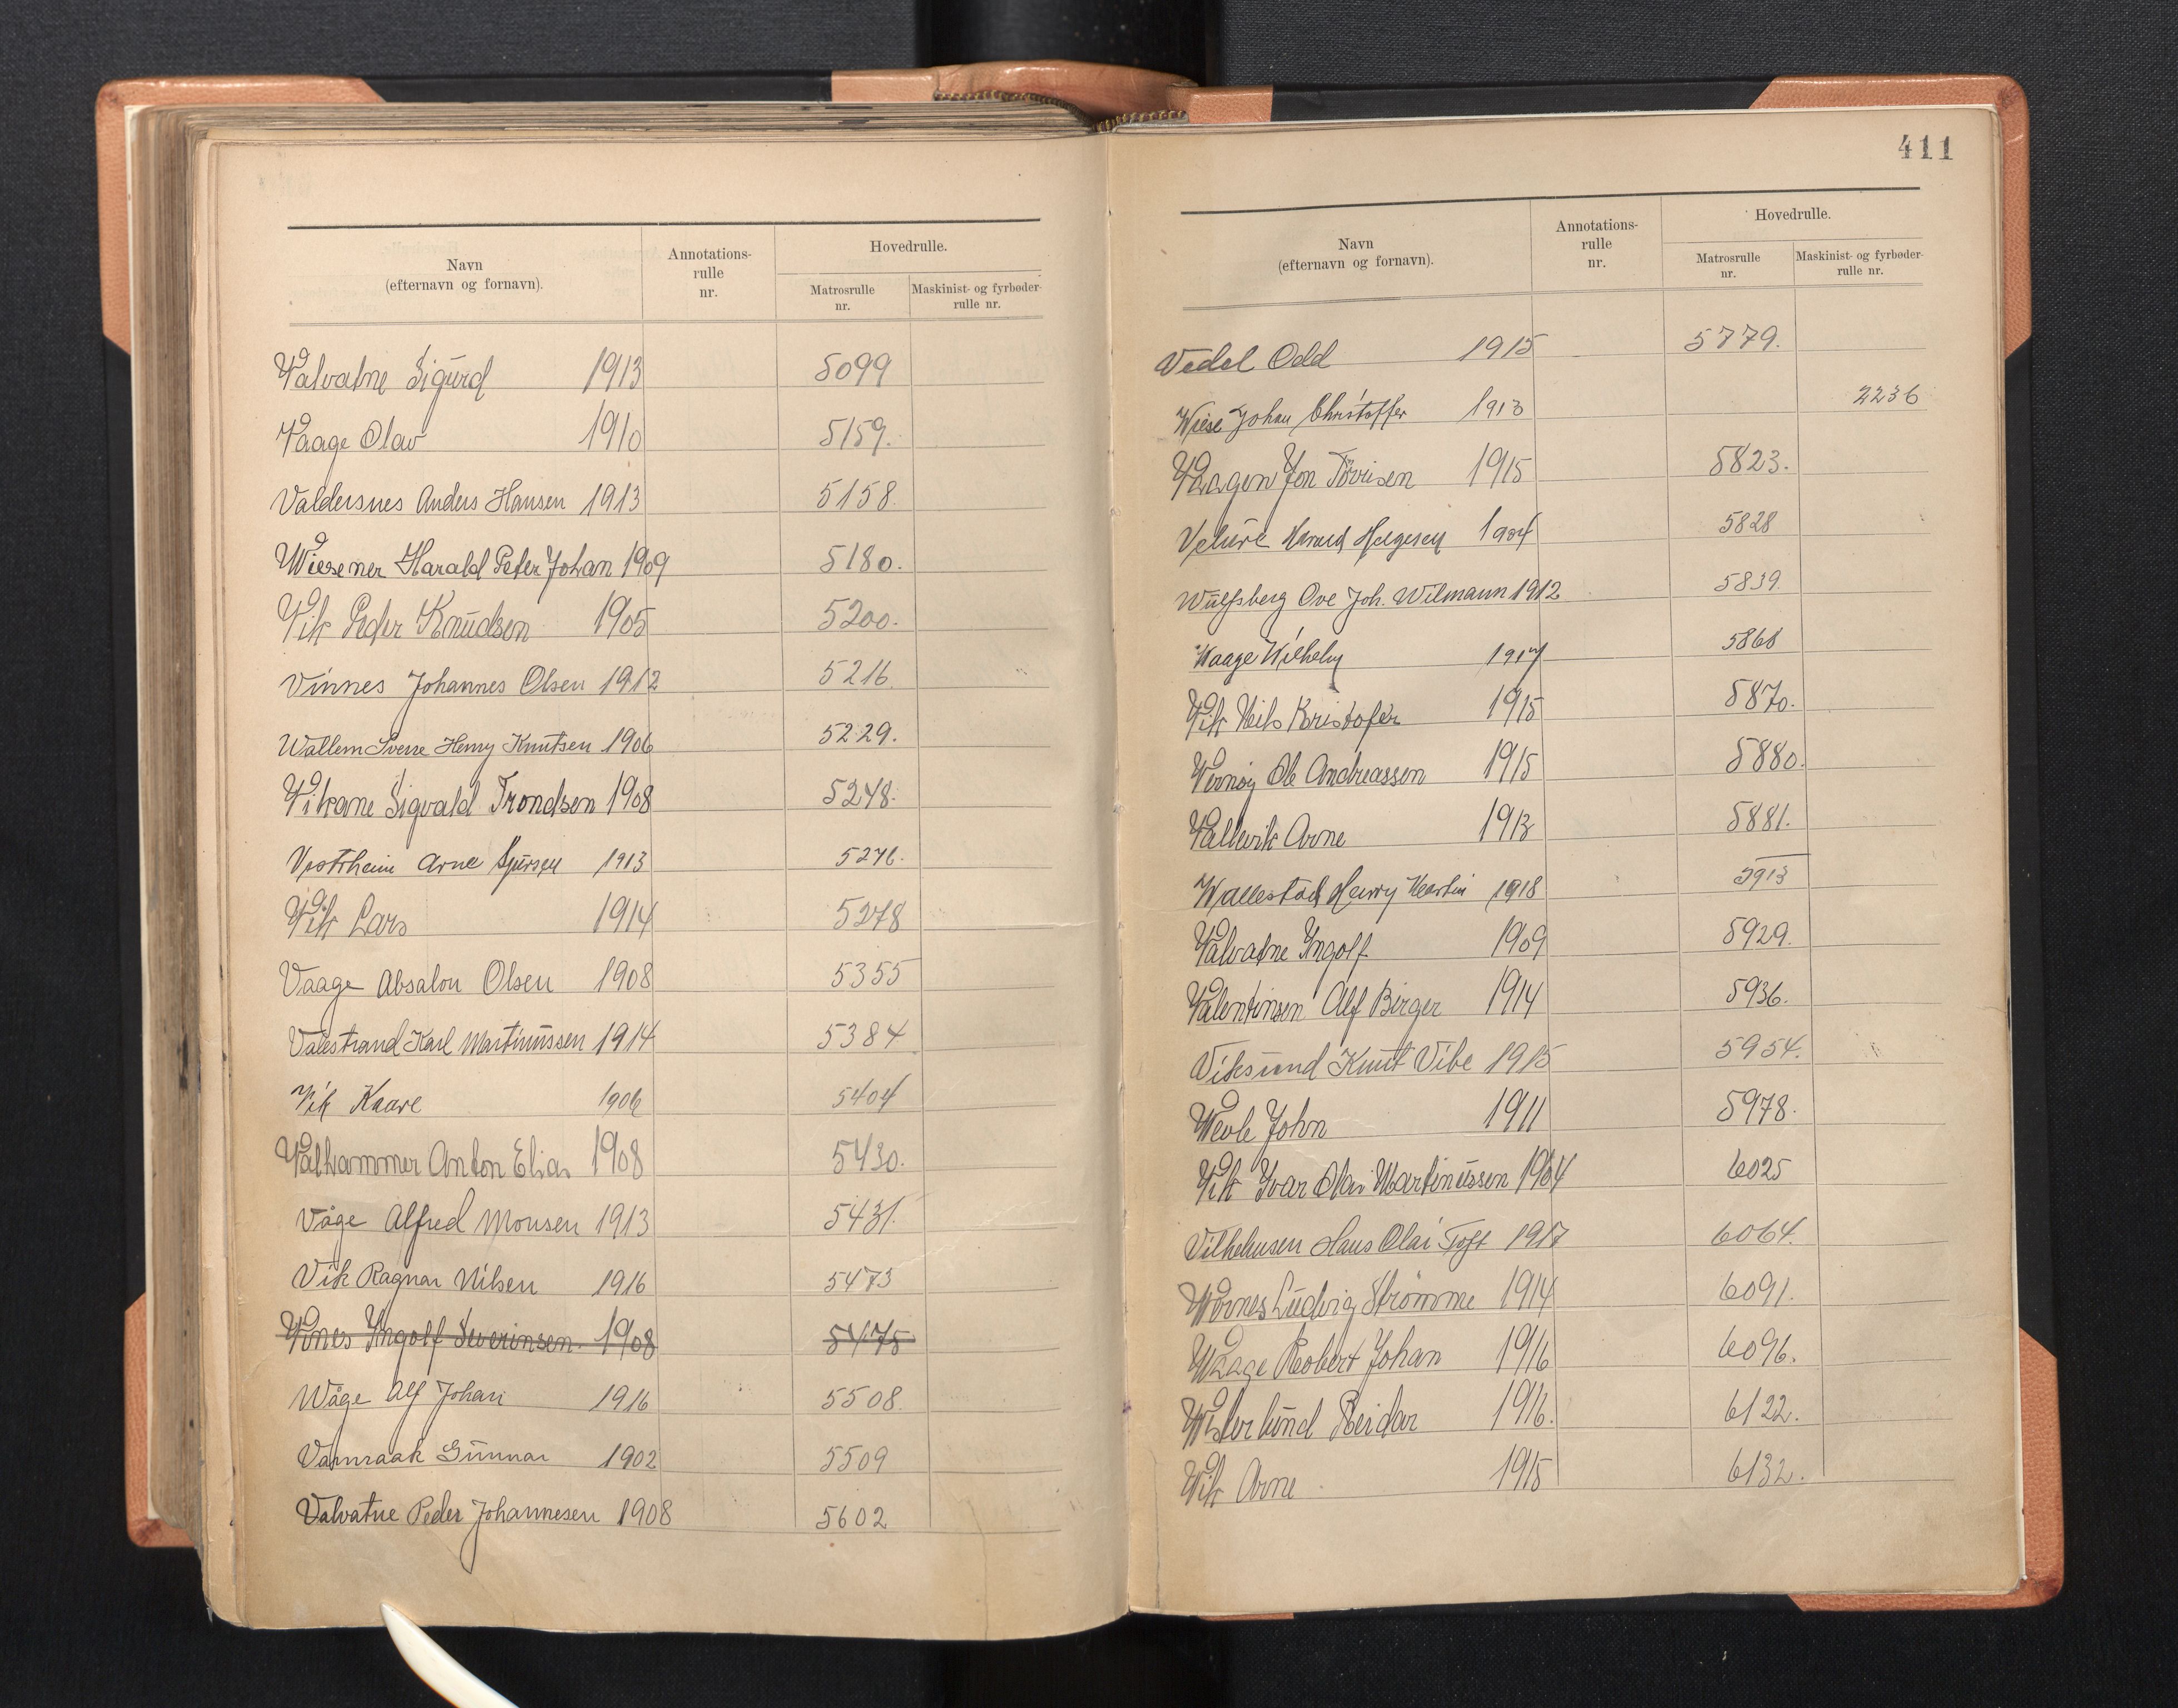 Navn
(efternavn og fornavn).
Annotations-
rulle
nr.
Hovedrulle.
Matrosrulle
nr.
Maskinist- og fyrbøder-
rulle nr.
Valvatne Sigurd 1913 5099
Vaage Olav 1910 5159.
Valdersnes Anders Hansen 1913 5158.
Wiesener Harald Peter Johan 1909 5180.
Vik Peder Knudsen 1905 5200.
Vinnes Johannes Olsen 1912 5216.
Wallem Sverre Henry Knutsen 1906 5229.
Vikane Sigvald Trondsen 1908 5248.
Vestrheim Arne Sjursen 1913 5276.
Vik Lars 1914 5278
Vaage Absalon Olsen 1908 5355
Valestrand Karl Martinussen 1914 5384
Vik Kaare 1906 5404
Valhammer Anton Elias 1908 5430.
Våge Alfred Monsen 1913 5431.
Vik Ragnar Nilsen 1916 5473
Vines Yngolf Severinsen 1908 5475
Wåge Alf Johan 1916 5508.
Vamraak Gunnar 1902 5509
Valvatne Peder Johannesen 1908 5602
411
Navn
(efternavn og fornavn).
Annotations-
rulle
nr.
Hovedrulle.
Matrosrulle
nr.
Maskinist- og fyrbøder-
rulle nr.
Vedel Odd 1915 5779.
Wiese Johan Christoffer 1913 2236
Vaagen Jon 1915 5823.
Velure Harald Helgesen 1904 5828
Wulfsberg Ove Joh. Wilmann 1912 5839.
Waage Wilhelm 5868
Vik Nils Kristofer 1915 5870.
Vernøy Ole Andreassen 1915 5880.
Vallevik Arne 1913 5881.
Wallestad Henry Martin 1918 5913
Valvatne Yngolf 1909 5929.
Valentinsen Alf Birger 1914 5936.
Viksund Knut Vibe 1915 5954.
Wevle John 1911 5978.
Vik Yvar Olai Martinussen 1904 6025
Vilhelmsen Hans Olai Toft 1917 6064.
Wornes Ludvig Strømme 1914 6091.
Waage Robert Johan 1916 6096.
Westerlund Reidar 1916. 6122.
Wik Arne 1915 6132.